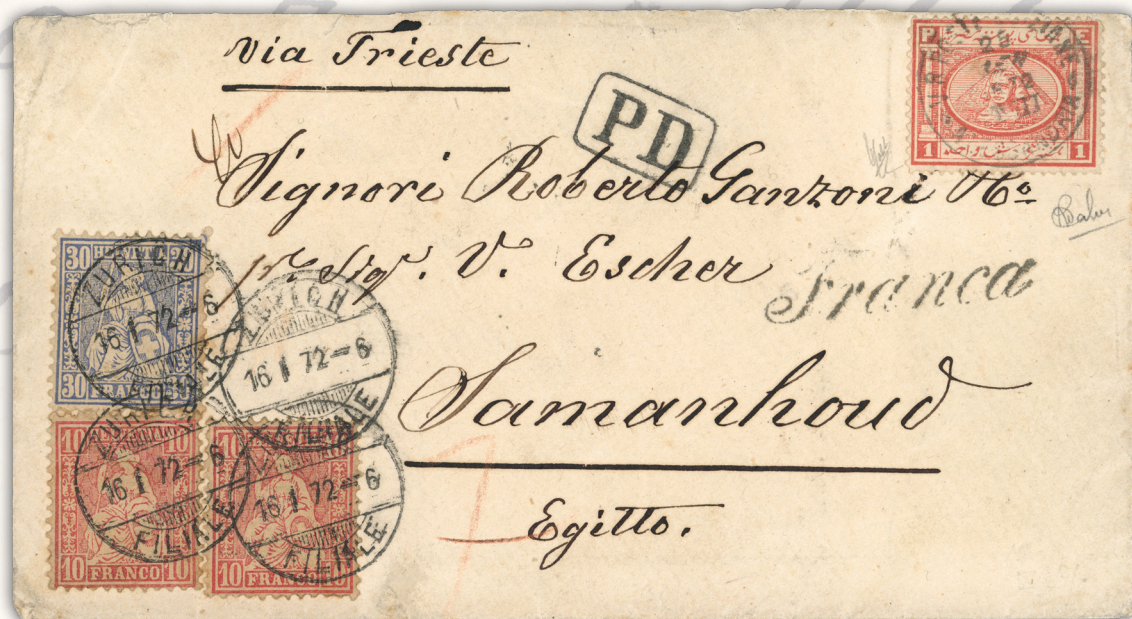 via Trieste
PD
Signori Roberto Ganzoni & Co
pr Sigr. V. Escher
Franca
Samanhoud
Egitto.
1 1
30 HELVETIA 30
30 FRANCO 30
ZURICH
16 I 72-6
FILIALE
ZURICH
16 I 72-6
FILIALE
10 10
10 FRANCO 10
ZURICH
16 I 72-6
FILIALE
10 10
10 FRANCO 10
16 I 72-6
FILIALE